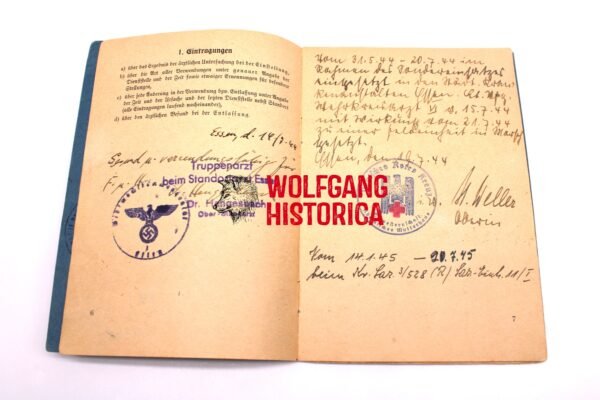 1. Eintragungen
a) über das Ergebnis der ärztlichen Untersuchung bei der Einstellung,
b) über die Art aller Verwendungen unter genauer Angabe der
Dienststelle und der Zeit sowie etwaiger Ernennungen für besondere
Stellungen,
c) über jede Änderung in der Verwendung bzw. Entlassung unter Angabe
der Zeit und der Ursache und der letzten Dienststelle nebst Standort
(alle Eintragungen laufend nacheinander),
d) über den ärztlichen Befund bei der Entlassung
Essen, d. 14/7.44
Gesund u. verwendungsfähig für
Truppenarzt
beim Standortarzt Essen
Dr.
WOLFGANG
HISTORICA
Essen
Vom 31.5.44 - 20.7.44 im
Rahmen des Sondereinsatzes
eingesetzt in den Städt. Kran-
kenanstalten Essen.
Wehrkreisarzt VI v. 15.7.44
mit Wirkung vom 21.7.44
zu einer Feldeinheit in Marsch
gesetzt.
Essen, den 7.44
Deutsches Rotes Kreuz
Weller
Oberin
Vom 14.1.45 — 20.7.45
beim Kr. Laz. 3/528 (R)
7